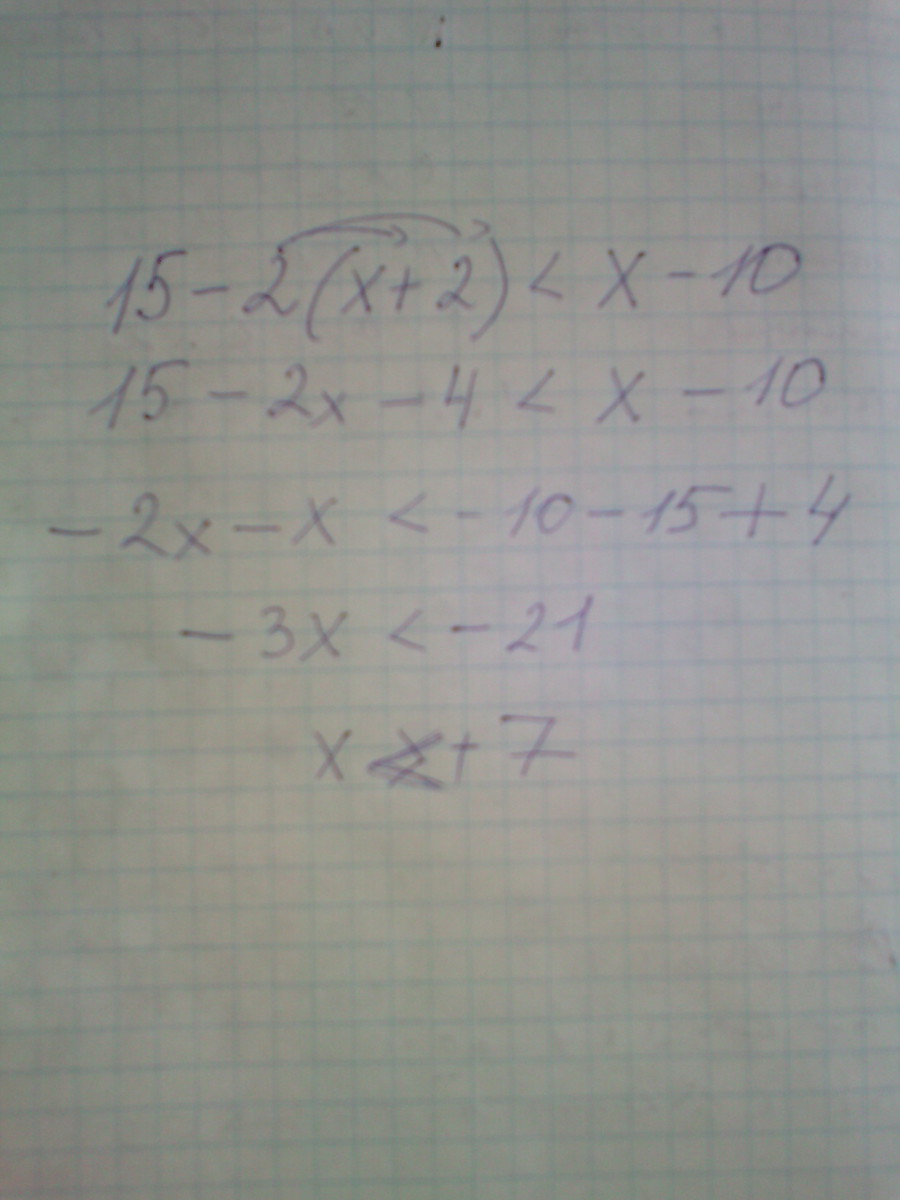 15 - 2(x + 2) < x - 10
15 - 2x - 4 < x - 10
- 2x - x < - 10 - 15 + 4
- 3x < - 21
x < + 7